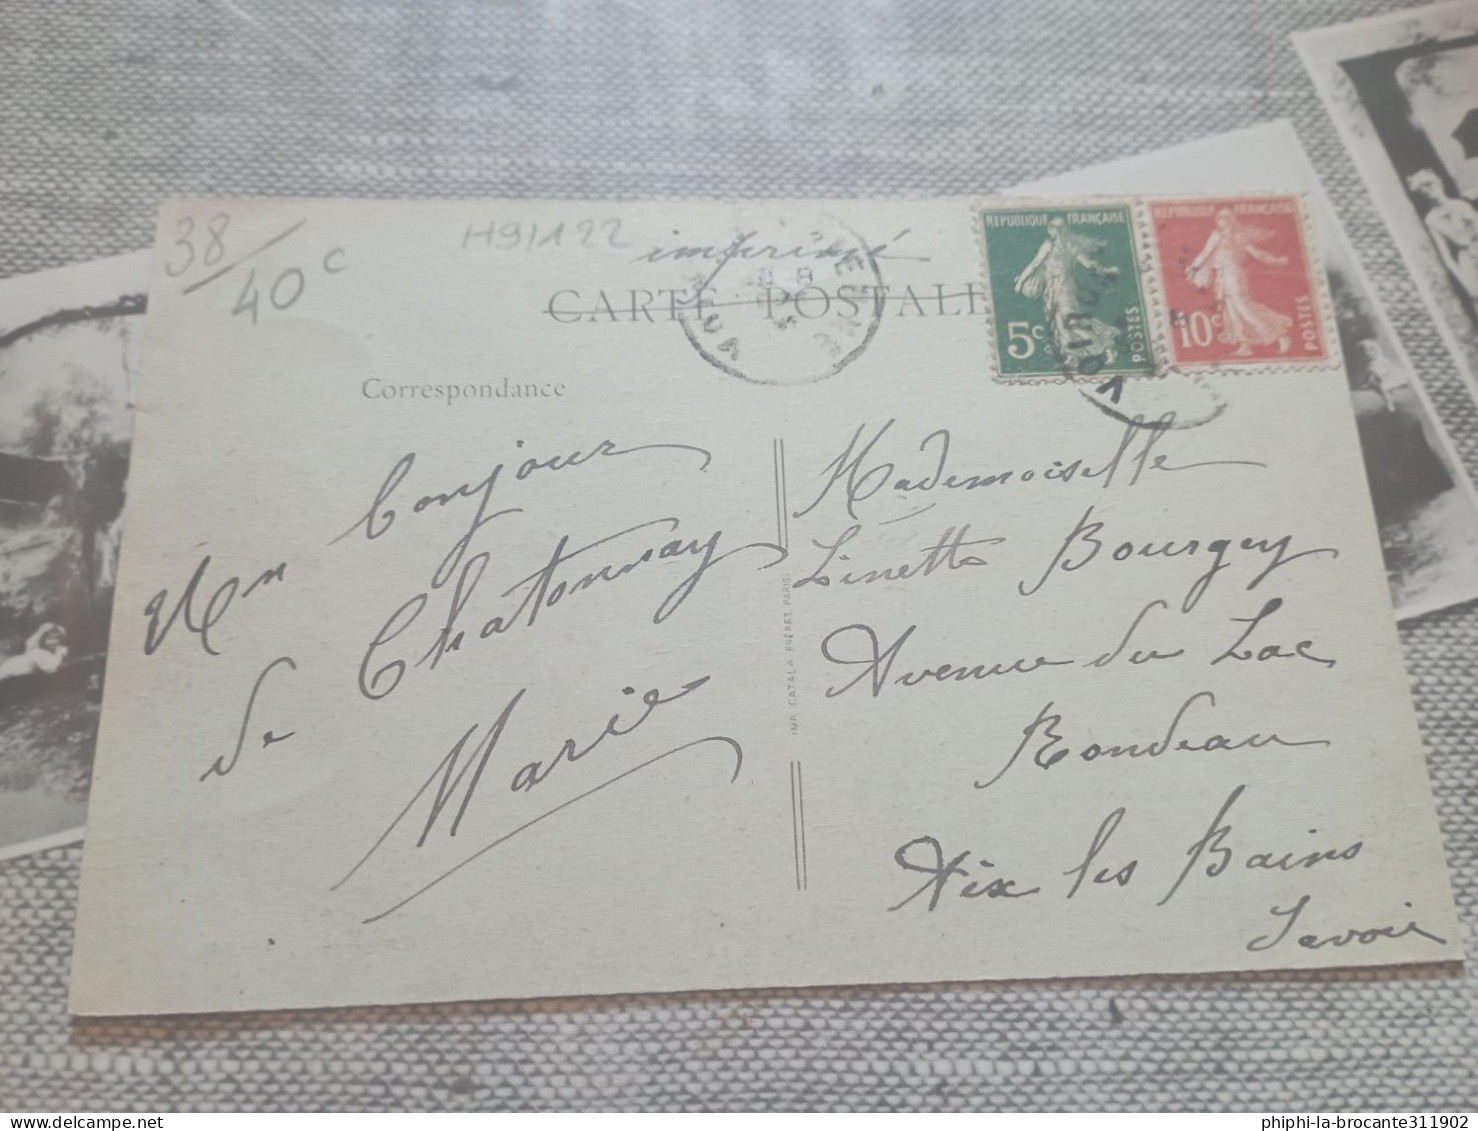 38/
40c
H9/122
imprimé
CARTE POSTALE
REPUBLIQUE FRANÇAISE
5c
POSTES
REPUBLIQUE FRANÇAISE
10c
POSTES
Correspondance
Un bonjour
de Chatonnay
Marie
IMP. CATALA FRERES, PARIS
Mademoiselle
Linette Bourgey
Avenue du Lac
Rondeau
Aix les Bains
Savoie
phiphi-la-brocante311902